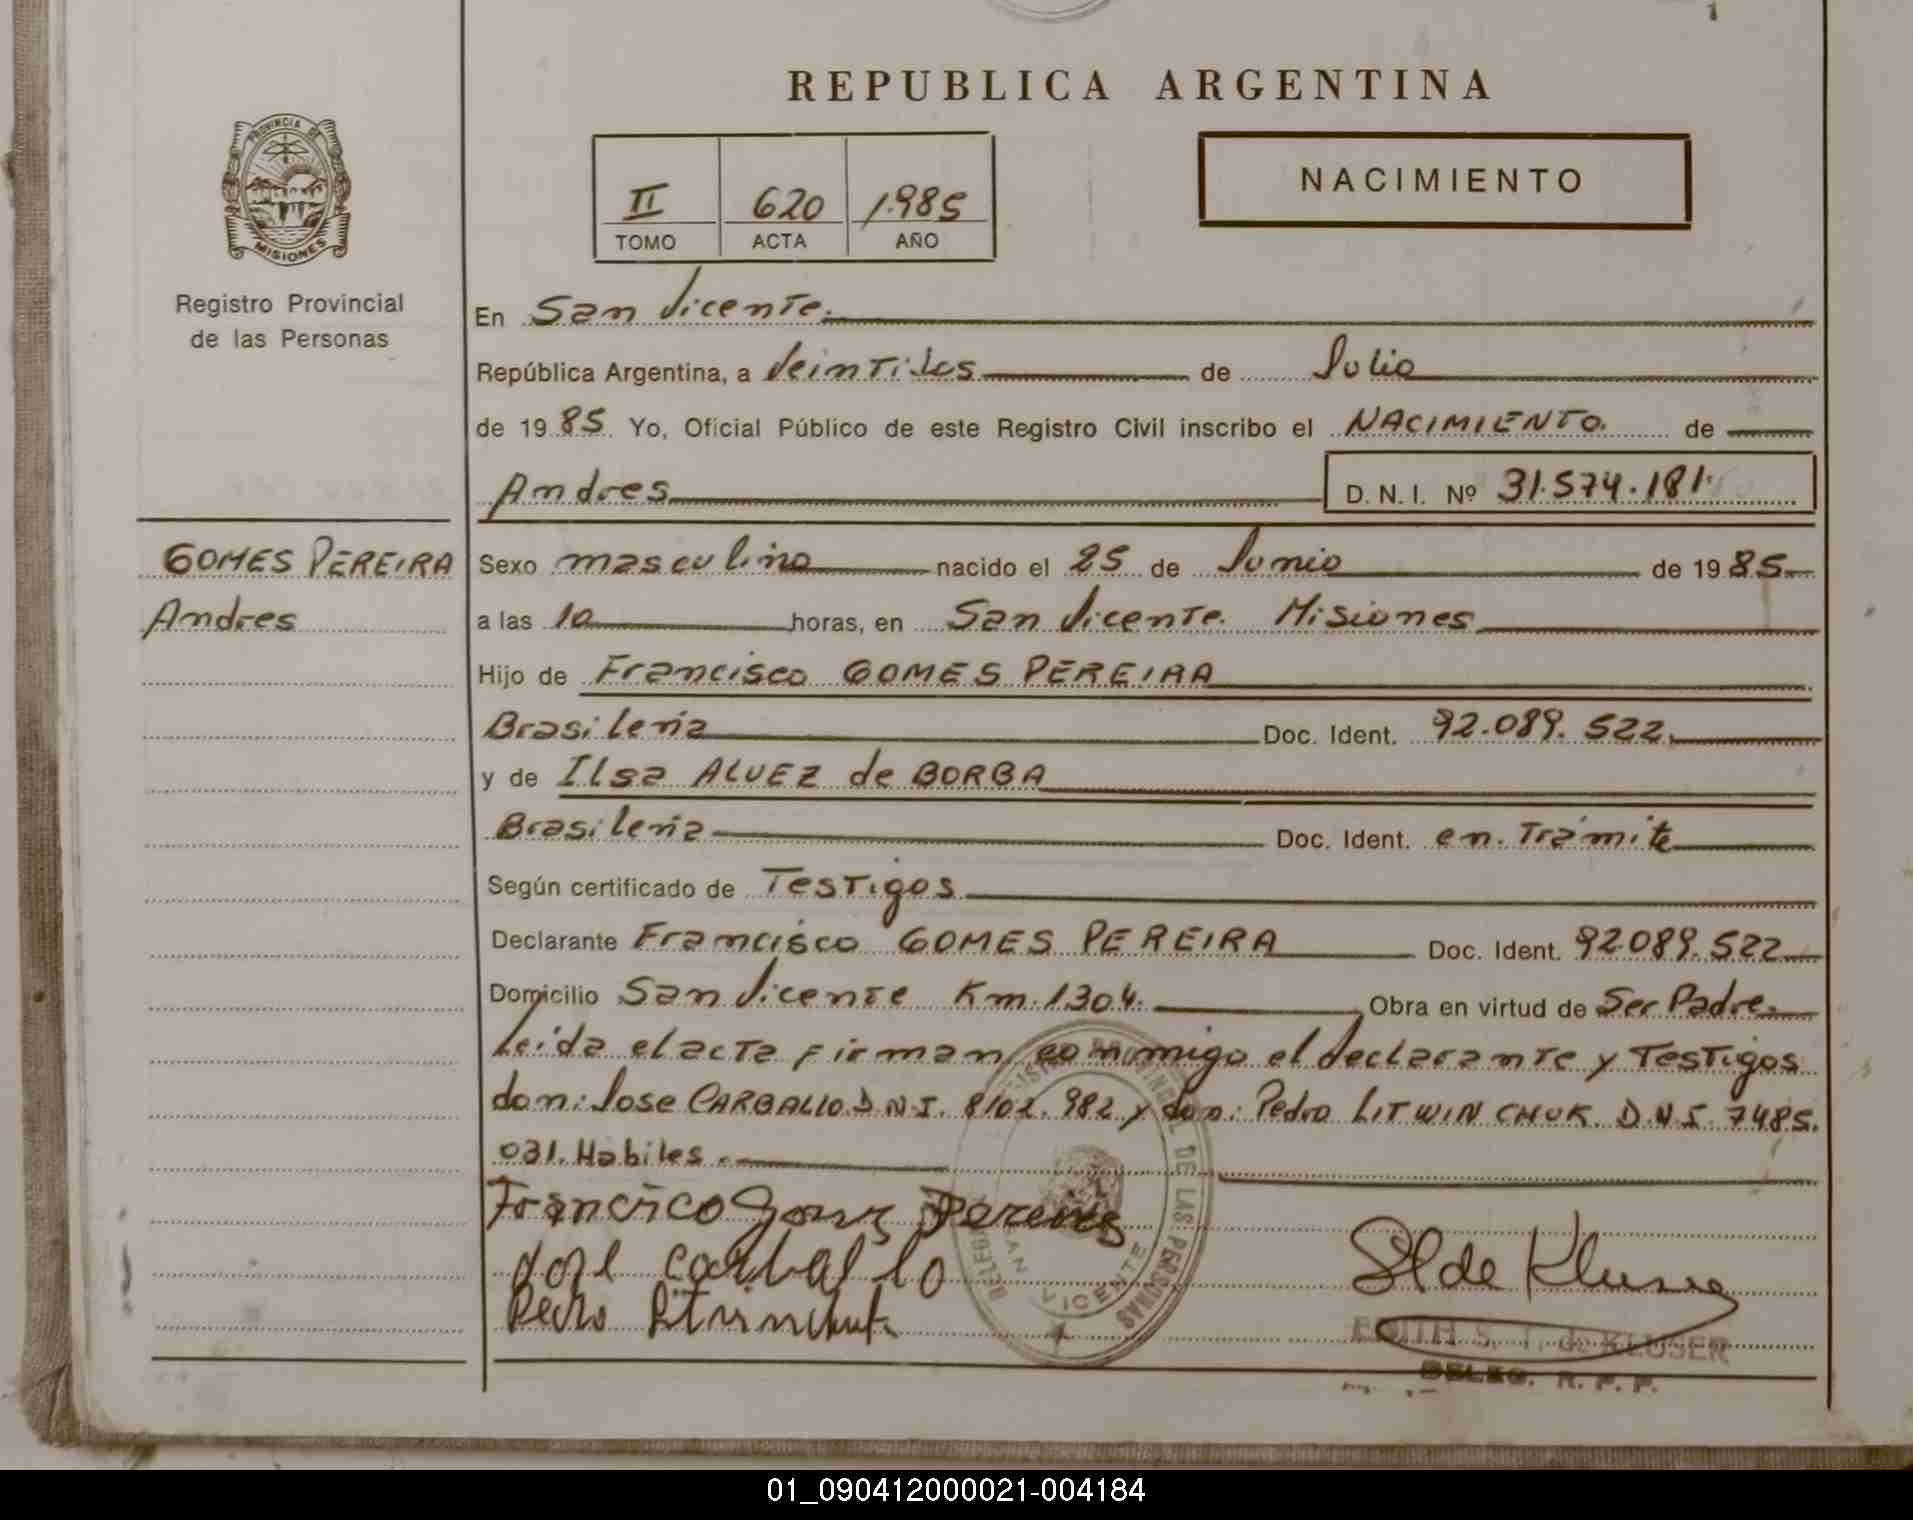 1
REPUBLICA ARGENTINA
PROVINCIA DE
MISIONES
II 620 1.985
TOMO ACTA AÑO
NACIMIENTO
Registro Provincial
de las Personas
En San Vicente.
República Argentina, a Veintidos de Julio
de 19 85 Yo, Oficial Público de este Registro Civil inscribo el NACIMIENTO. de
Andres D. N. I. Nº 31.574.181
GOMES PEREIRA
Andres
Sexo masculino nacido el 25 de Junio de 19 85
a las 10 horas, en San Vicente. Misiones
Hijo de Francisco GOMES PEREIRA
Brasileña Doc. Ident. 92.089.522
y de Ilsa ALVEZ de BORBA
Brasileña Doc. Ident. en Trámite
Según certificado de Testigos
Declarante Francisco GOMES PEREIRA Doc. Ident. 92.089.522
Domicilio San Vicente Km. 1304. Obra en virtud de Ser Padre.
Leida el acta firman conmigo el declarante y Testigos
don: Jose CARBALLO D.N.I. 8102.982 y don: Pedro LITWINCHUK. D.N.I. 7485.
031. Habiles.
Francico Pereira
José carballo
Pedro
DE LAS PERSONAS
SAN VICENTE
S I de Kluser
EDITH S. I. de KLUSER
DELEG. R. P. P.
01_090412000021-004184